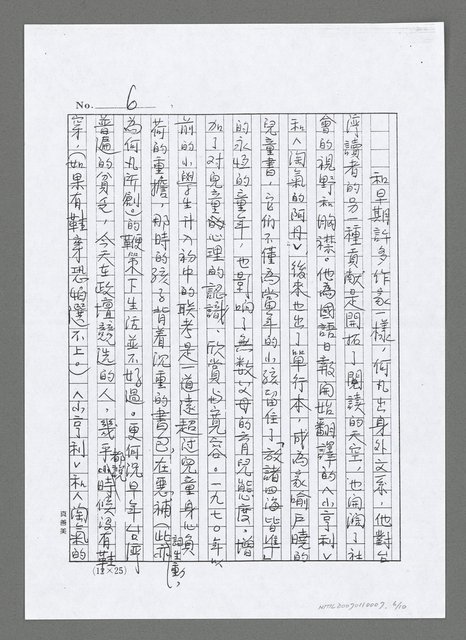 No. 6
和早期許多作家一樣,何凡出身外文系,他對台
灣讀者的另一種貢獻是開拓了閱讀的天空,也開濶了社
會的視野和胸襟。他為國語日報開始翻譯的《小亨利》
和《淘氣的阿丹》後來也出了單行本,成為家喻戶曉的
兒童書,它們不僅為當年的小孩留住了「放諸四海皆準」
的永恒的童年,也影响了無數父母的育兒態度。增
加了对兒童心理的認識、欣賞与寬容。一九七〇年以
前的小學生升入初中的联考是一道遠超过兒童身心負
荷的重擔,那時的孩子背着沉重的書包,在惡補(此亦
為何凡所創。)的鞭策下生活並不好過。更何況早年台灣
詞生動,
普遍的貧乏,今天在政壇競選的人,幾乎都說小時候沒有鞋
穿,(如果有鞋穿恐怕選不上。)《小亨利》和《淘氣的
(12×25)
真善美
NMTL20070110007 6/10